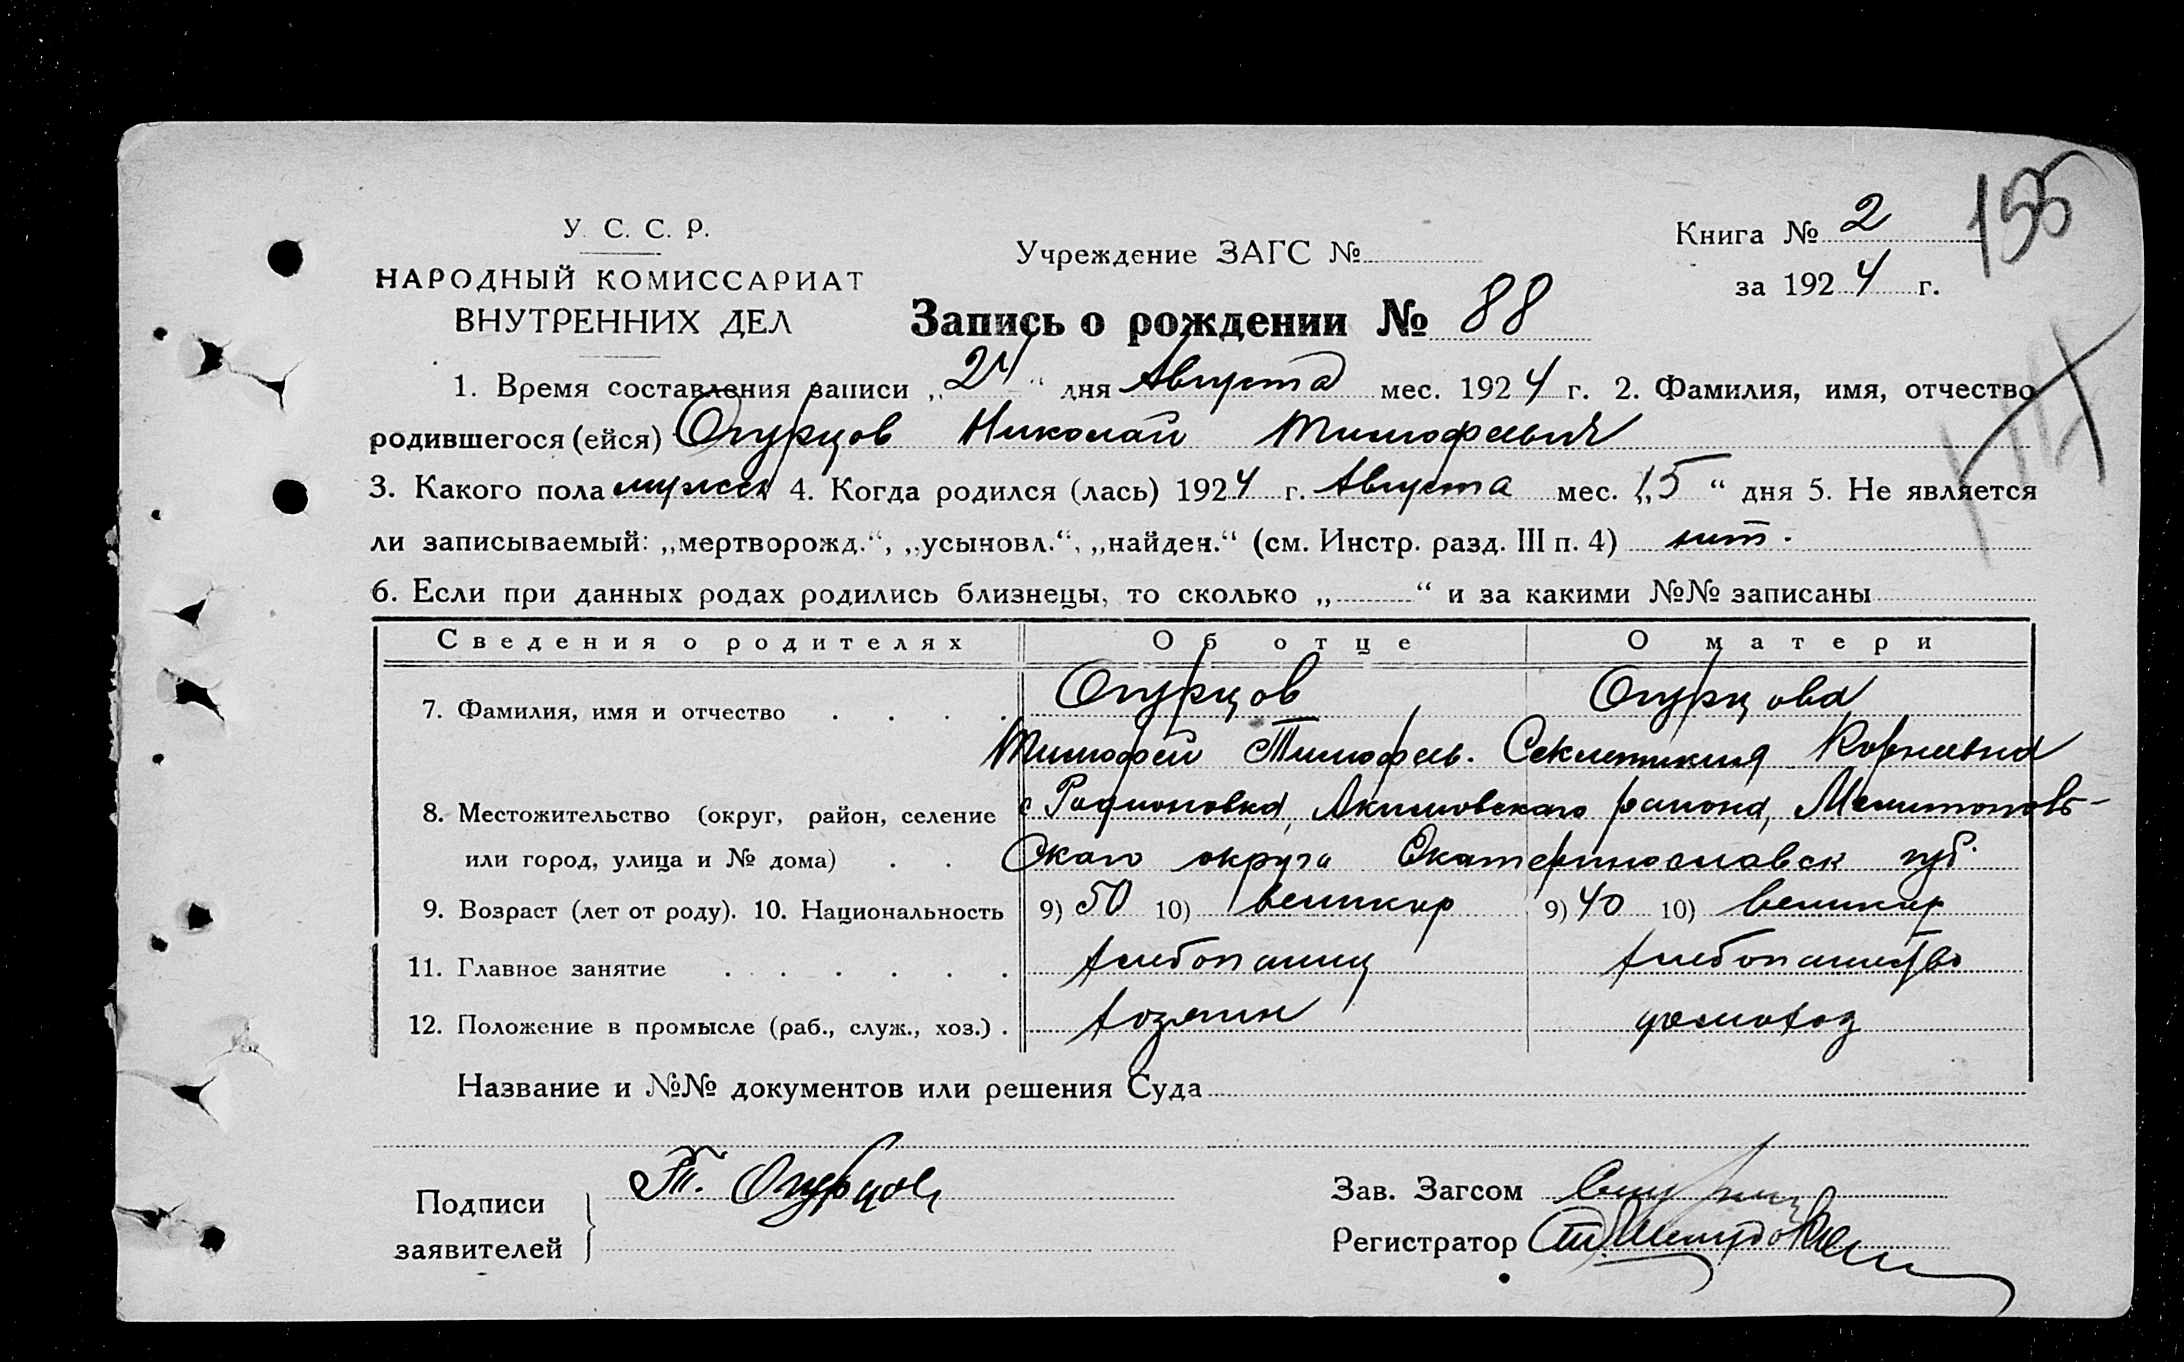 155
У. С. С. Р.
НАРОДНЫЙ КОМИССАРИАТ
ВНУТРЕННИХ ДЕЛ
Учреждение ЗАГС №
Книга № 2
за 1924 г.
Запись о рождении № 88
1. Время составления записи „24“ дня Августа мес. 1924 г. 2. Фамилия, имя, отчество
родившегося (ейся) Огурцов Николай Тимофеевич
3. Какого пола мужск 4. Когда родился (лась) 1924 г. Августа мес. „15“ дня 5. Не является
ли записываемый: „мертворожд.“, „усыновл.“, „найден.“ (см. Инстр. разд. III п. 4) нет.
6. Если при данных родах родились близнецы, то сколько „ “ и за какими №№ записаны
Сведения о родителях Об отце О матери
7. Фамилия, имя и отчество Огурцов Огурцова
Тимофей Тимофеев. Секлетикия Корнеевна
8. Местожительство (округ, район, селение с Родионовка, Акимовского района, Мелитополь-
или город, улица и № дома) ского округа Екатеринославск губ.
9. Возраст (лет от роду). 10. Национальность 9) 50 10) великор 9) 40 10) великор
11. Главное занятие хлебопашец хлебопашество
12. Положение в промысле (раб., служ., хоз.) хозяин домохоз
Название и №№ документов или решения Суда
Подписи
заявителей
Т. Огурцов
Зав. Загсом
Регистратор